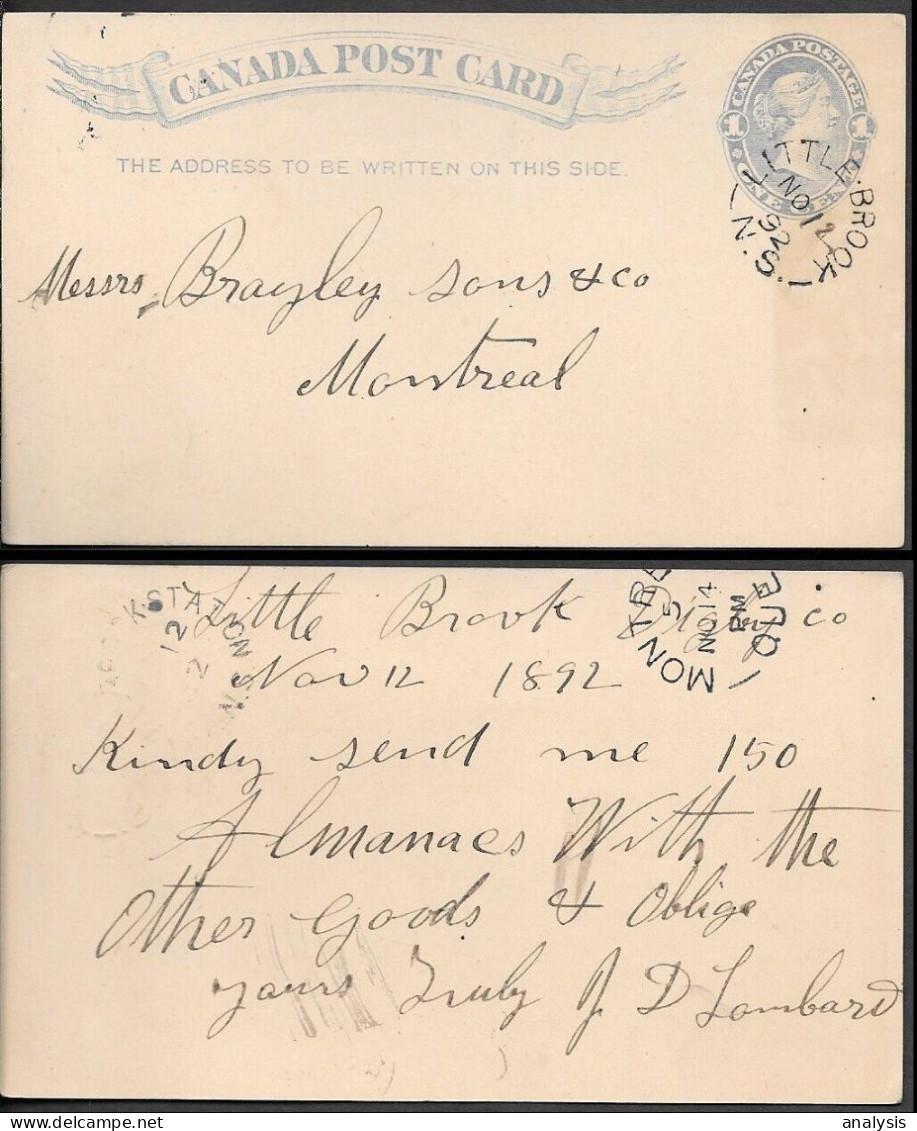 CANADA POST CARD
CANADA POSTAGE
1 1
ONE PENNY
THE ADDRESS TO BE WRITTEN ON THIS SIDE.
LITTLE.BROOK
NO 12
92
N.S.
Messrs Brayley Sons & Co
Montreal
KSTATION
12
2
MONTRE
5
NO 14
PM
QUE
Little Brook Digby Co
Nov 12 1892
Kindy send me 150
Almanacs With the
Other Goods & Oblige
yours Truly J D Lombard
analysis